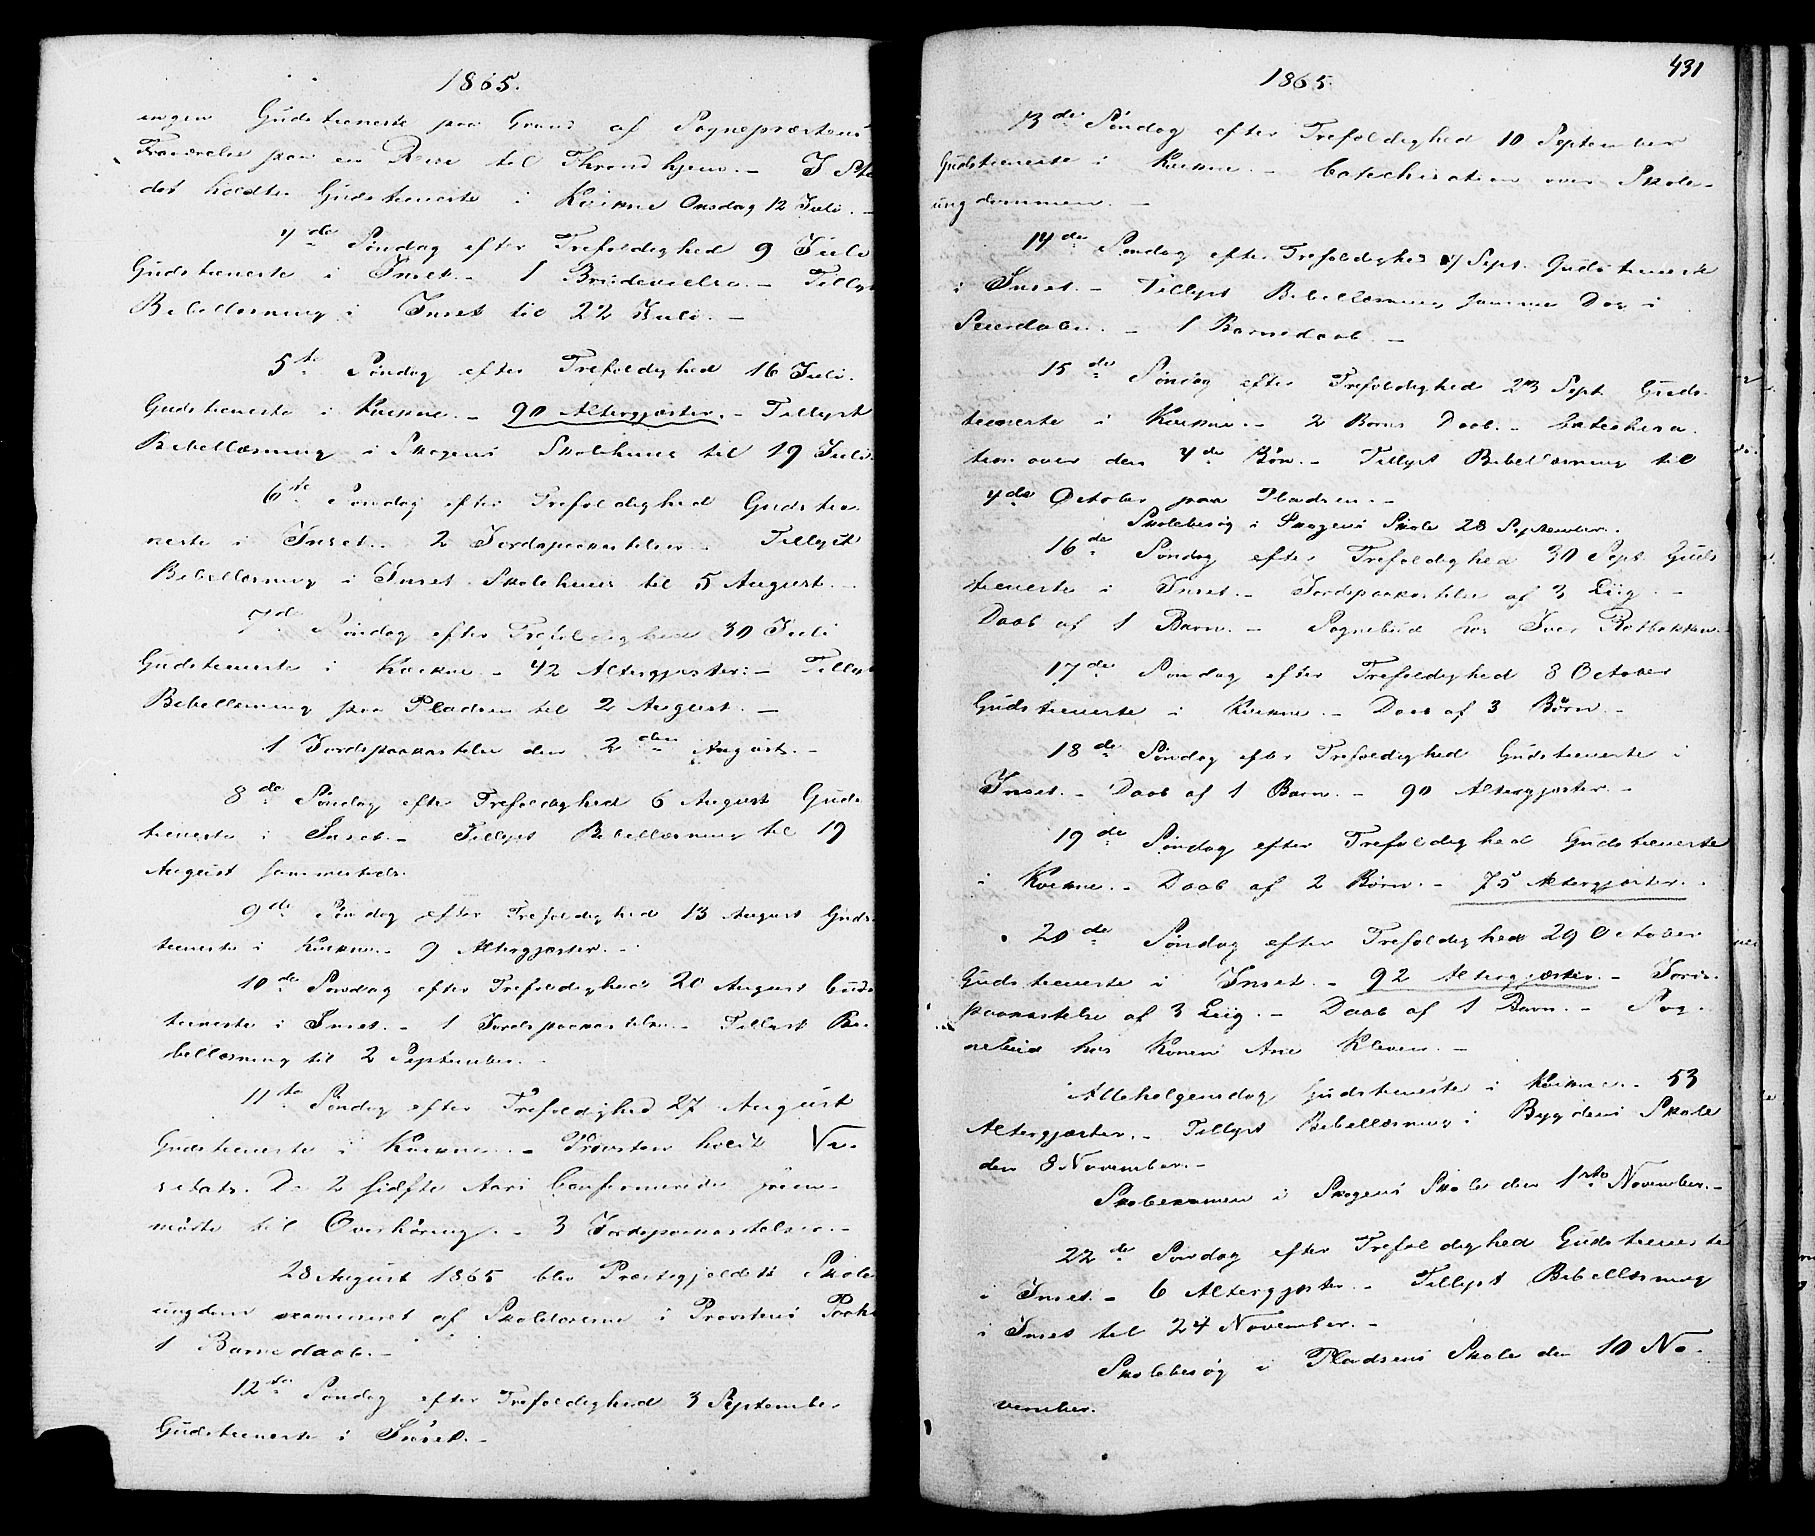 1865.
ingen Gudstieneste paa Grund af Sognepræstens
Fraværelse paa en Reise til Throndhjem. – I Ste
det holdtes Gudstieneste i Kvikne Onsdag 12 Juli. –
4de Søndag efter Trefoldighed 9 Juli
Gudstieneste i Inset. – 1 Brudevielse. – Tillyst
Bibellæsning i Inset til 22 Juli. –
5te Søndag efter Trefoldighed 16 Juli.
Gudstieneste i Kvikne. – 90 Altergjæster. – Tillyst
Bibellæsning i Skogens Skolehuus til 19 Juli.
6te Søndag efter Trefoldighed Gudstie
neste i Inset. 2 Jordspaakastelser. Tillyst
Bibellæsning i Inset Skolehuus til 5 August. –
7de Søndag efter Trefoldighed 30 Juli
Gudstieneste i Kvikne. – 42 Altergjæster. – Tillyst
Bibellæsning paa Pladsen til 2 August. –
1 Jordspaakastelse den 2den August. –
8de Søndag efter Trefoldighed 6 August Guds
tieneste i Inset. – Tillyst Bibellæsning til 19
August sammesteds.
9de Søndag efter Trefoldighed 13 August Guds
tieneste i Kvikne. 9 Altergjæster. –
10de Søndag efter Trefoldighed 20 August Guds
tieneste i Inset. – 1 Jordspaakastelse. – Tillyst Bi-
bellæsning til 2 September. –
11te Søndag efter Trefoldighed 27 August
Gudstieneste i Kvikne. – Provsten holdt Vi-
sitats. De 2 sidste Aars Confirmerede frem-
mødte til Overhøring. – 3 Jordspaakastelser. –
28 August 1865 blev Præstegjeldets Skole
ungdom examineret af Skolelærerne i Provstens Paahør
1 Barnedaab. –
12te Søndag efter Trefoldighed 3 September
Gudstieneste i Inset. –
431
1865.
13de Søndag efter Trefoldighed 10 September
Gudstieneste i Kvikne. – Catechisation over Skole-
ungdommen. –
14de Søndag efter Trefoldighed Sept. Gudstieneste
i Inset. – Tillyst Bibellæsning samme Dag i
1 Barnedaab. –
15de Søndag efter Trefoldighed 23 Sept. Guds-
tieneste i Kvikne. – 2 Børns Daab. – Catechisa-
tion over den 4de Bøn. – Tillyst Bibellæsning til
4de October paa Pladsen. –
Skolebesøg i Skogens Skole 28 September.
16de Søndag efter Trefoldighed 30 Sept. Guds
tieneste i Inset. – Jordspaakastelse af 3 Liig. –
Daab af 1 Barn. – Sognebud hos Iver –
17de Søndag efter Trefoldighed 8 October
Gudstieneste i Kvikne. – Daab af 3 Børn. –
18de Søndag efter Trefoldighed Gudstieneste i
Inset. – Daab af 1 Barn. – 90 Altergjæster. –
19de Søndag efter Trefoldighed Gudstieneste
i Kvikne. – Daab af 2 Børn. – 75 Altergjæster. –
20de Søndag efter Trefoldighed 29 October
Gudstieneste i Inset. – 92 Altergjæster. – Jords-
paakastelse af 3 Liig. – Daab af 1 Barn. – Sog-
nebud hos Konen Ane Kleven. –
Allehelgensdag Gudstieneste i Kvikne. – 53
Altergjæster. – Tillyst Bibellæsning i Bygdens Skole
den 8 November. –
Skoleexamen i Skogens Skole den 1ste November. –
22de Søndag efter Trefoldighed Gudstieneste
i Inset. – 6 Altergjæster. – Tillyst Bibellæsning
i Inset til 24 November. –
Skolebesøg i Pladsens Skole den 10 No-
vember.